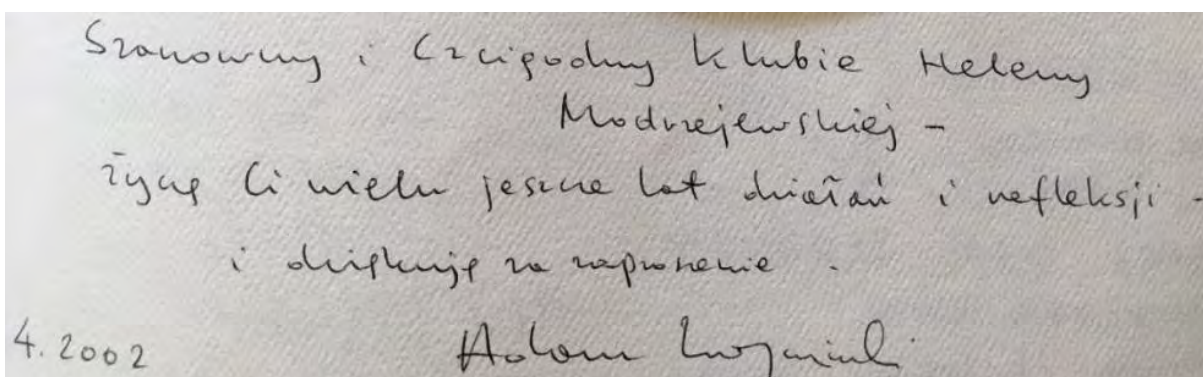 Szanowny i Czcigodny Klubie Heleny
Modrzejewskiej –
życzę Ci wielu jeszcze lat działań i refleksji –
i dziękuję za zaproszenie.
4.2002 Adam